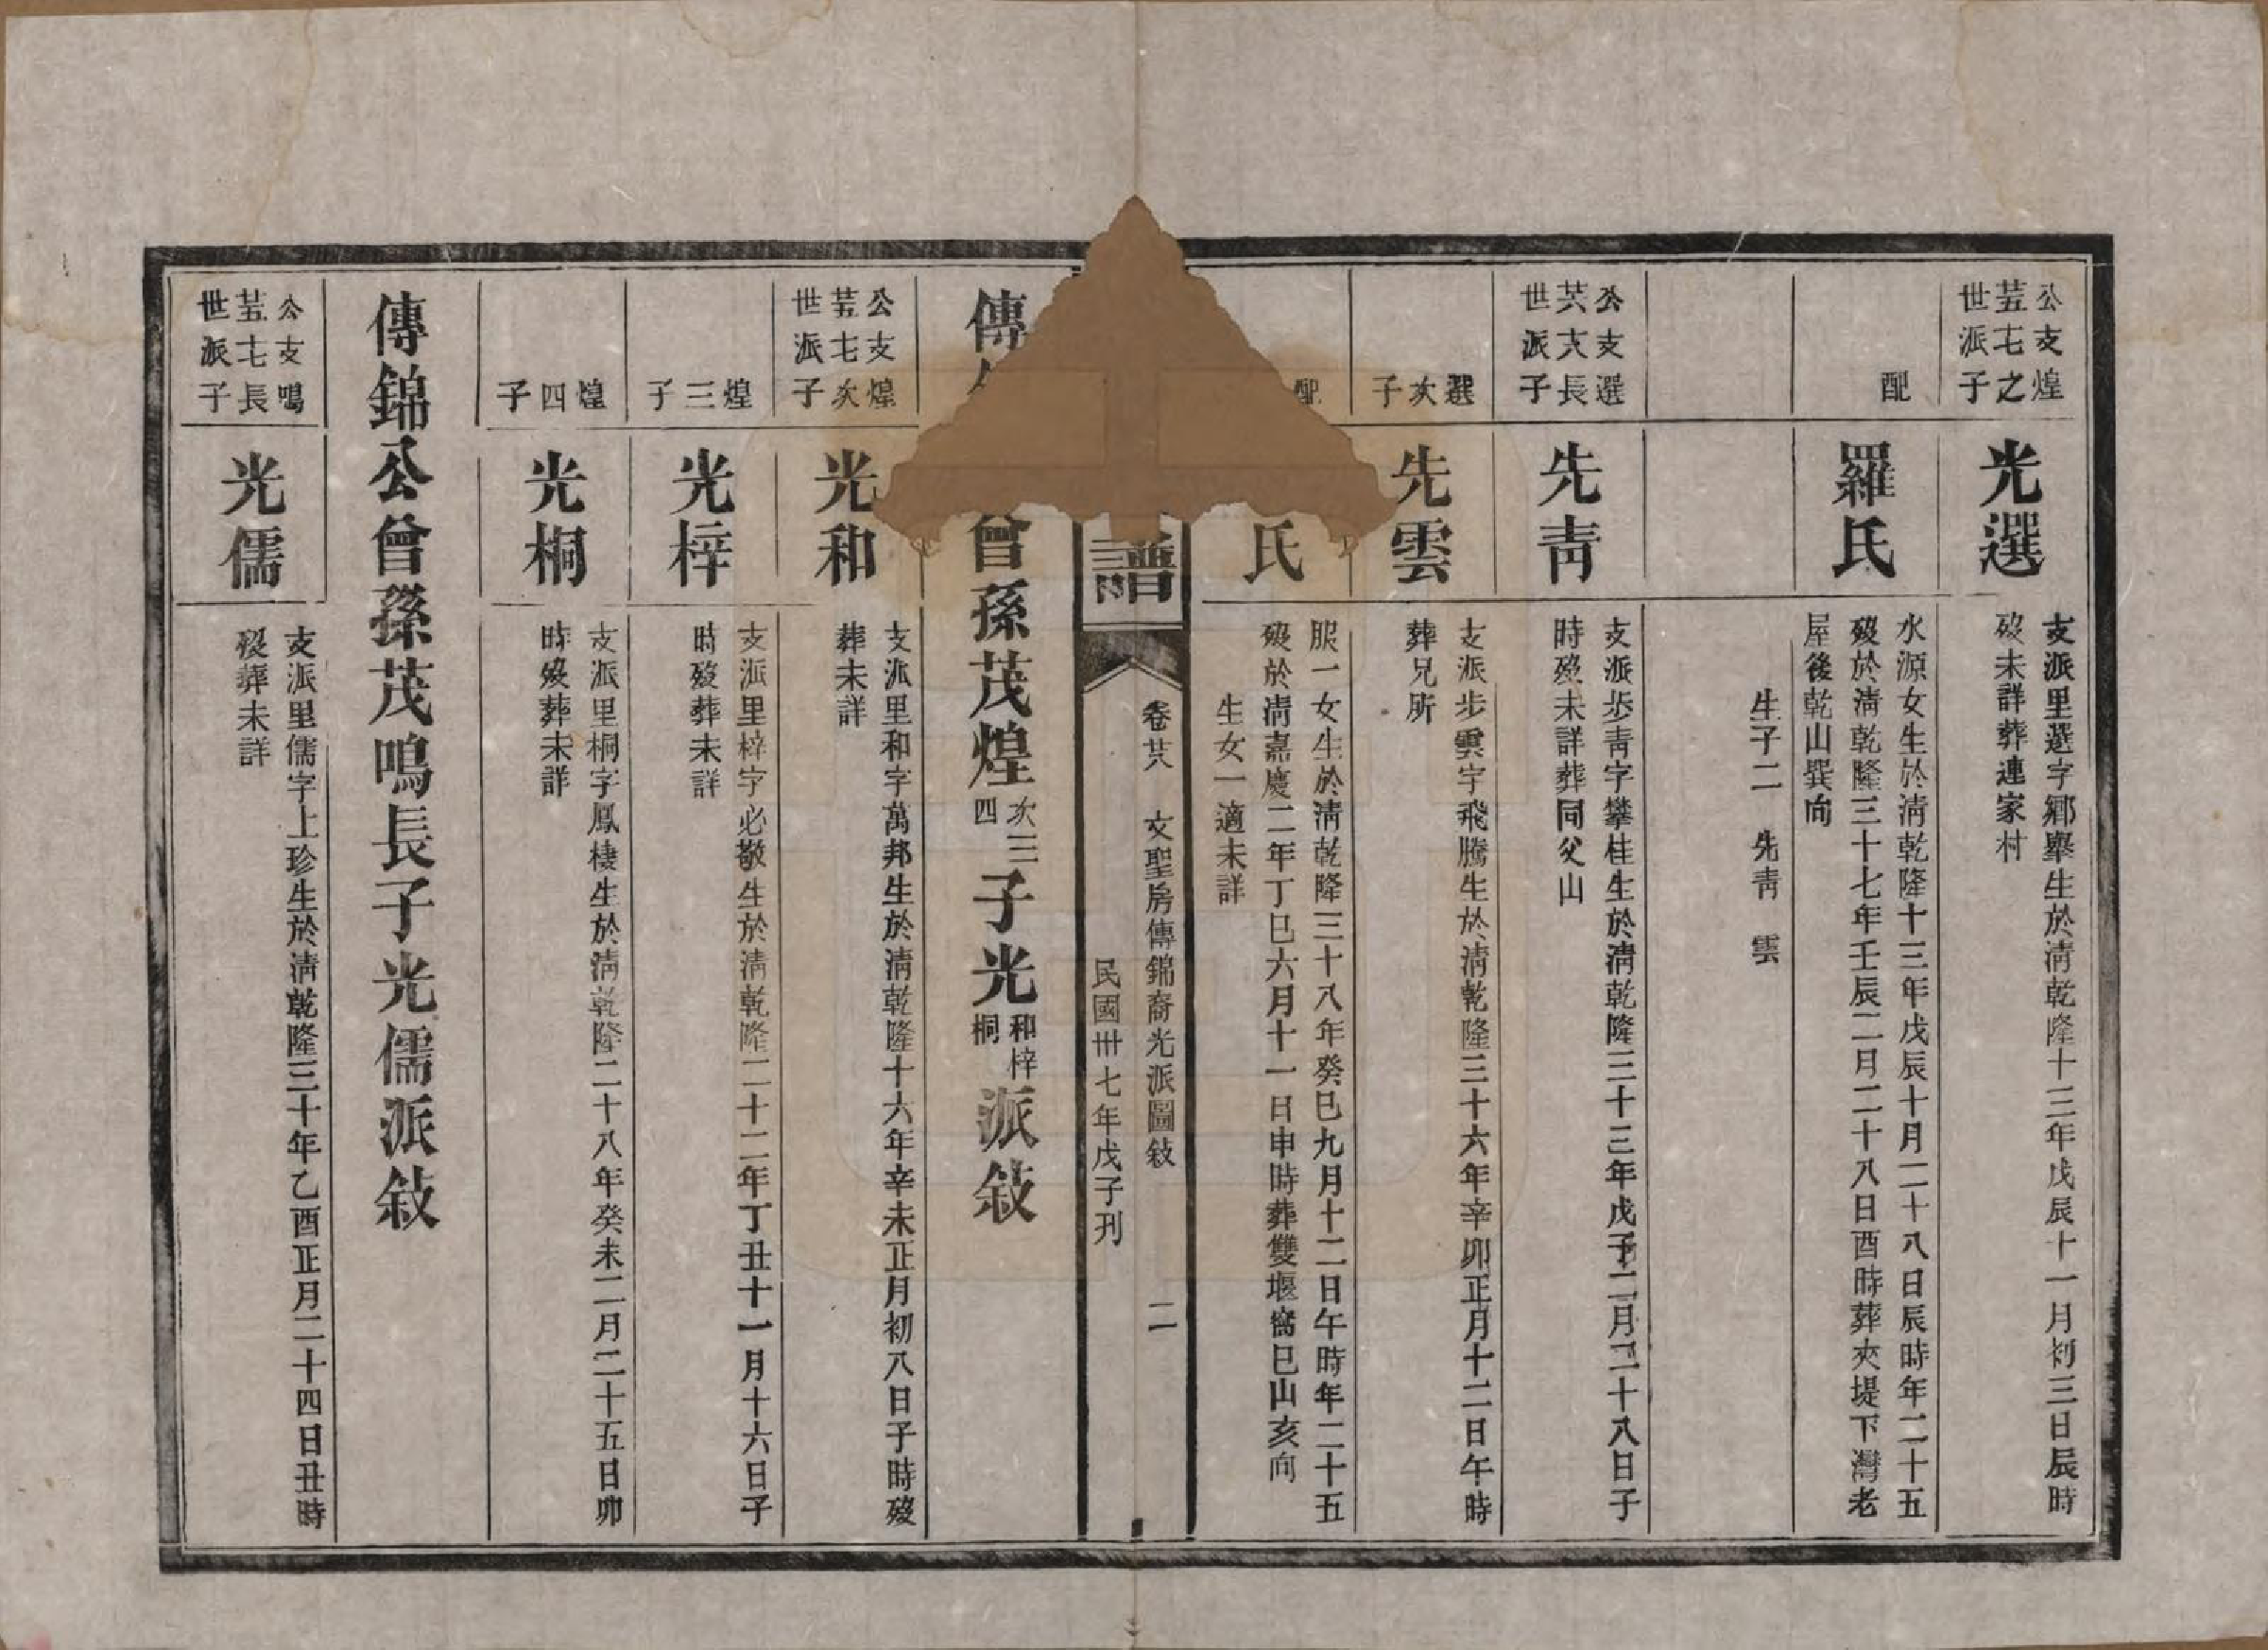 公支煌
芸七之
世派子
光選
支派里選字鄉舉生於清乾隆十三年戊辰十一月初三日辰時
歿未詳葬連家村
配
羅氏
水源女生於清乾隆十三年戊辰十月二十八日辰時年二十五
歿於清乾隆三十七年壬辰二月二十八日酉時葬夾堤下灣老
屋後乾山巽向
生子二　先靑　雲
公支選
芸大長
世派子
先靑
支派步靑字攀桂生於清乾隆三十三年戊子二月二十八日子
時歿未詳葬同父山
選次子
先雲
支派步雲字飛騰生於清乾隆三十六年辛卯正月十二日午時
葬兄所
配
氏
服一女生於清乾隆三十八年癸巳九月十二日午時年二十五
歿於清嘉慶二年丁巳六月十一日申時葬雙堰窩巳山亥向
生女一適未詳
譜
卷廿八　文聖房傳錦裔光派圖敍　二
民國卅七年戊子刊
傳　曾孫茂煌次三四子光和梓桐派敍
公支煌
芸七次
世派子
光和
支派里和字萬邦生於清乾隆十六年辛未正月初八日子時歿
葬未詳
煌三子
光梓
支派里梓字必敬生於清乾隆二十二年丁丑十一月十六日子
時歿葬未詳
煌四子
光桐
支派里桐字鳳棲生於清乾隆二十八年癸未二月二十五日卯
時歿葬未詳
傳錦公曾孫茂鳴長子光儒派敍
公支鳴
芸七長
世派子
光儒
支派里儒字上珍生於清乾隆三十年乙酉正月二十四日丑時
歿葬未詳